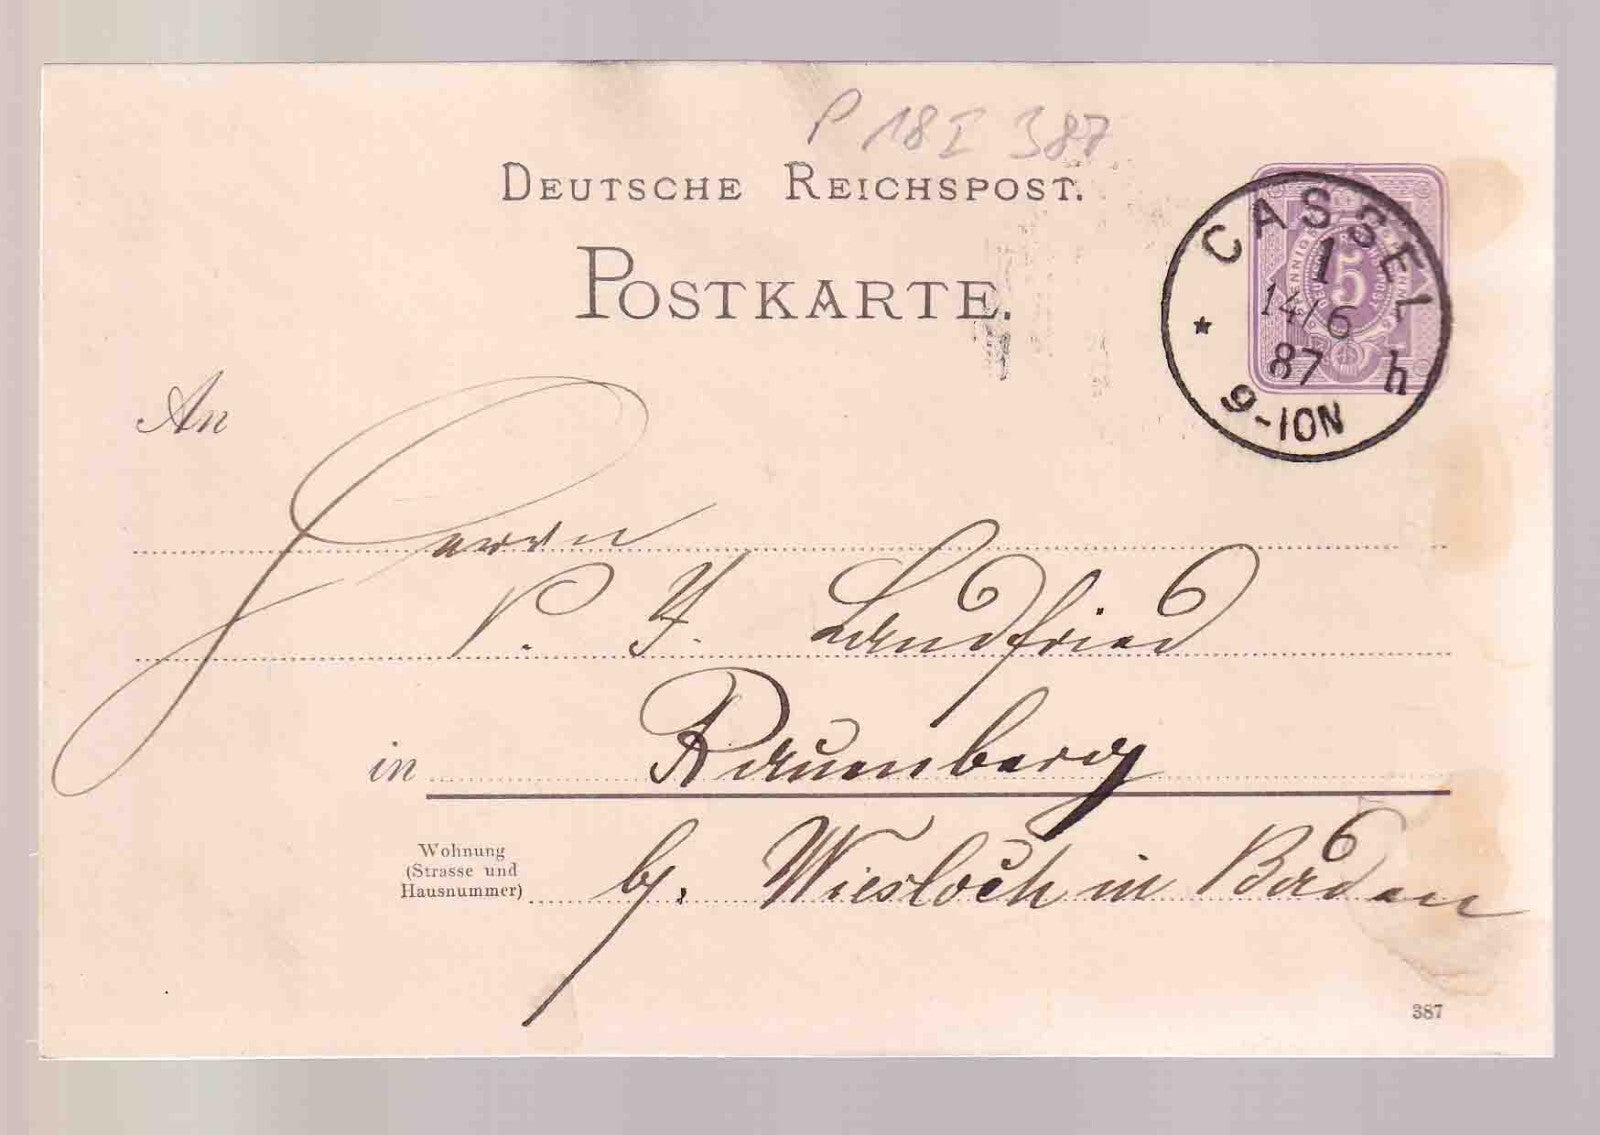 P 18 I 387
DEUTSCHE REICHSPOST.
POSTKARTE.
CASSEL
1
14/6
87 h
9-10N
5
An
Herrn
P. J. Landfried
in Rauenberg
Wohnung
(Strasse und
Hausnummer)
b/. Wiesloch in Baden
387